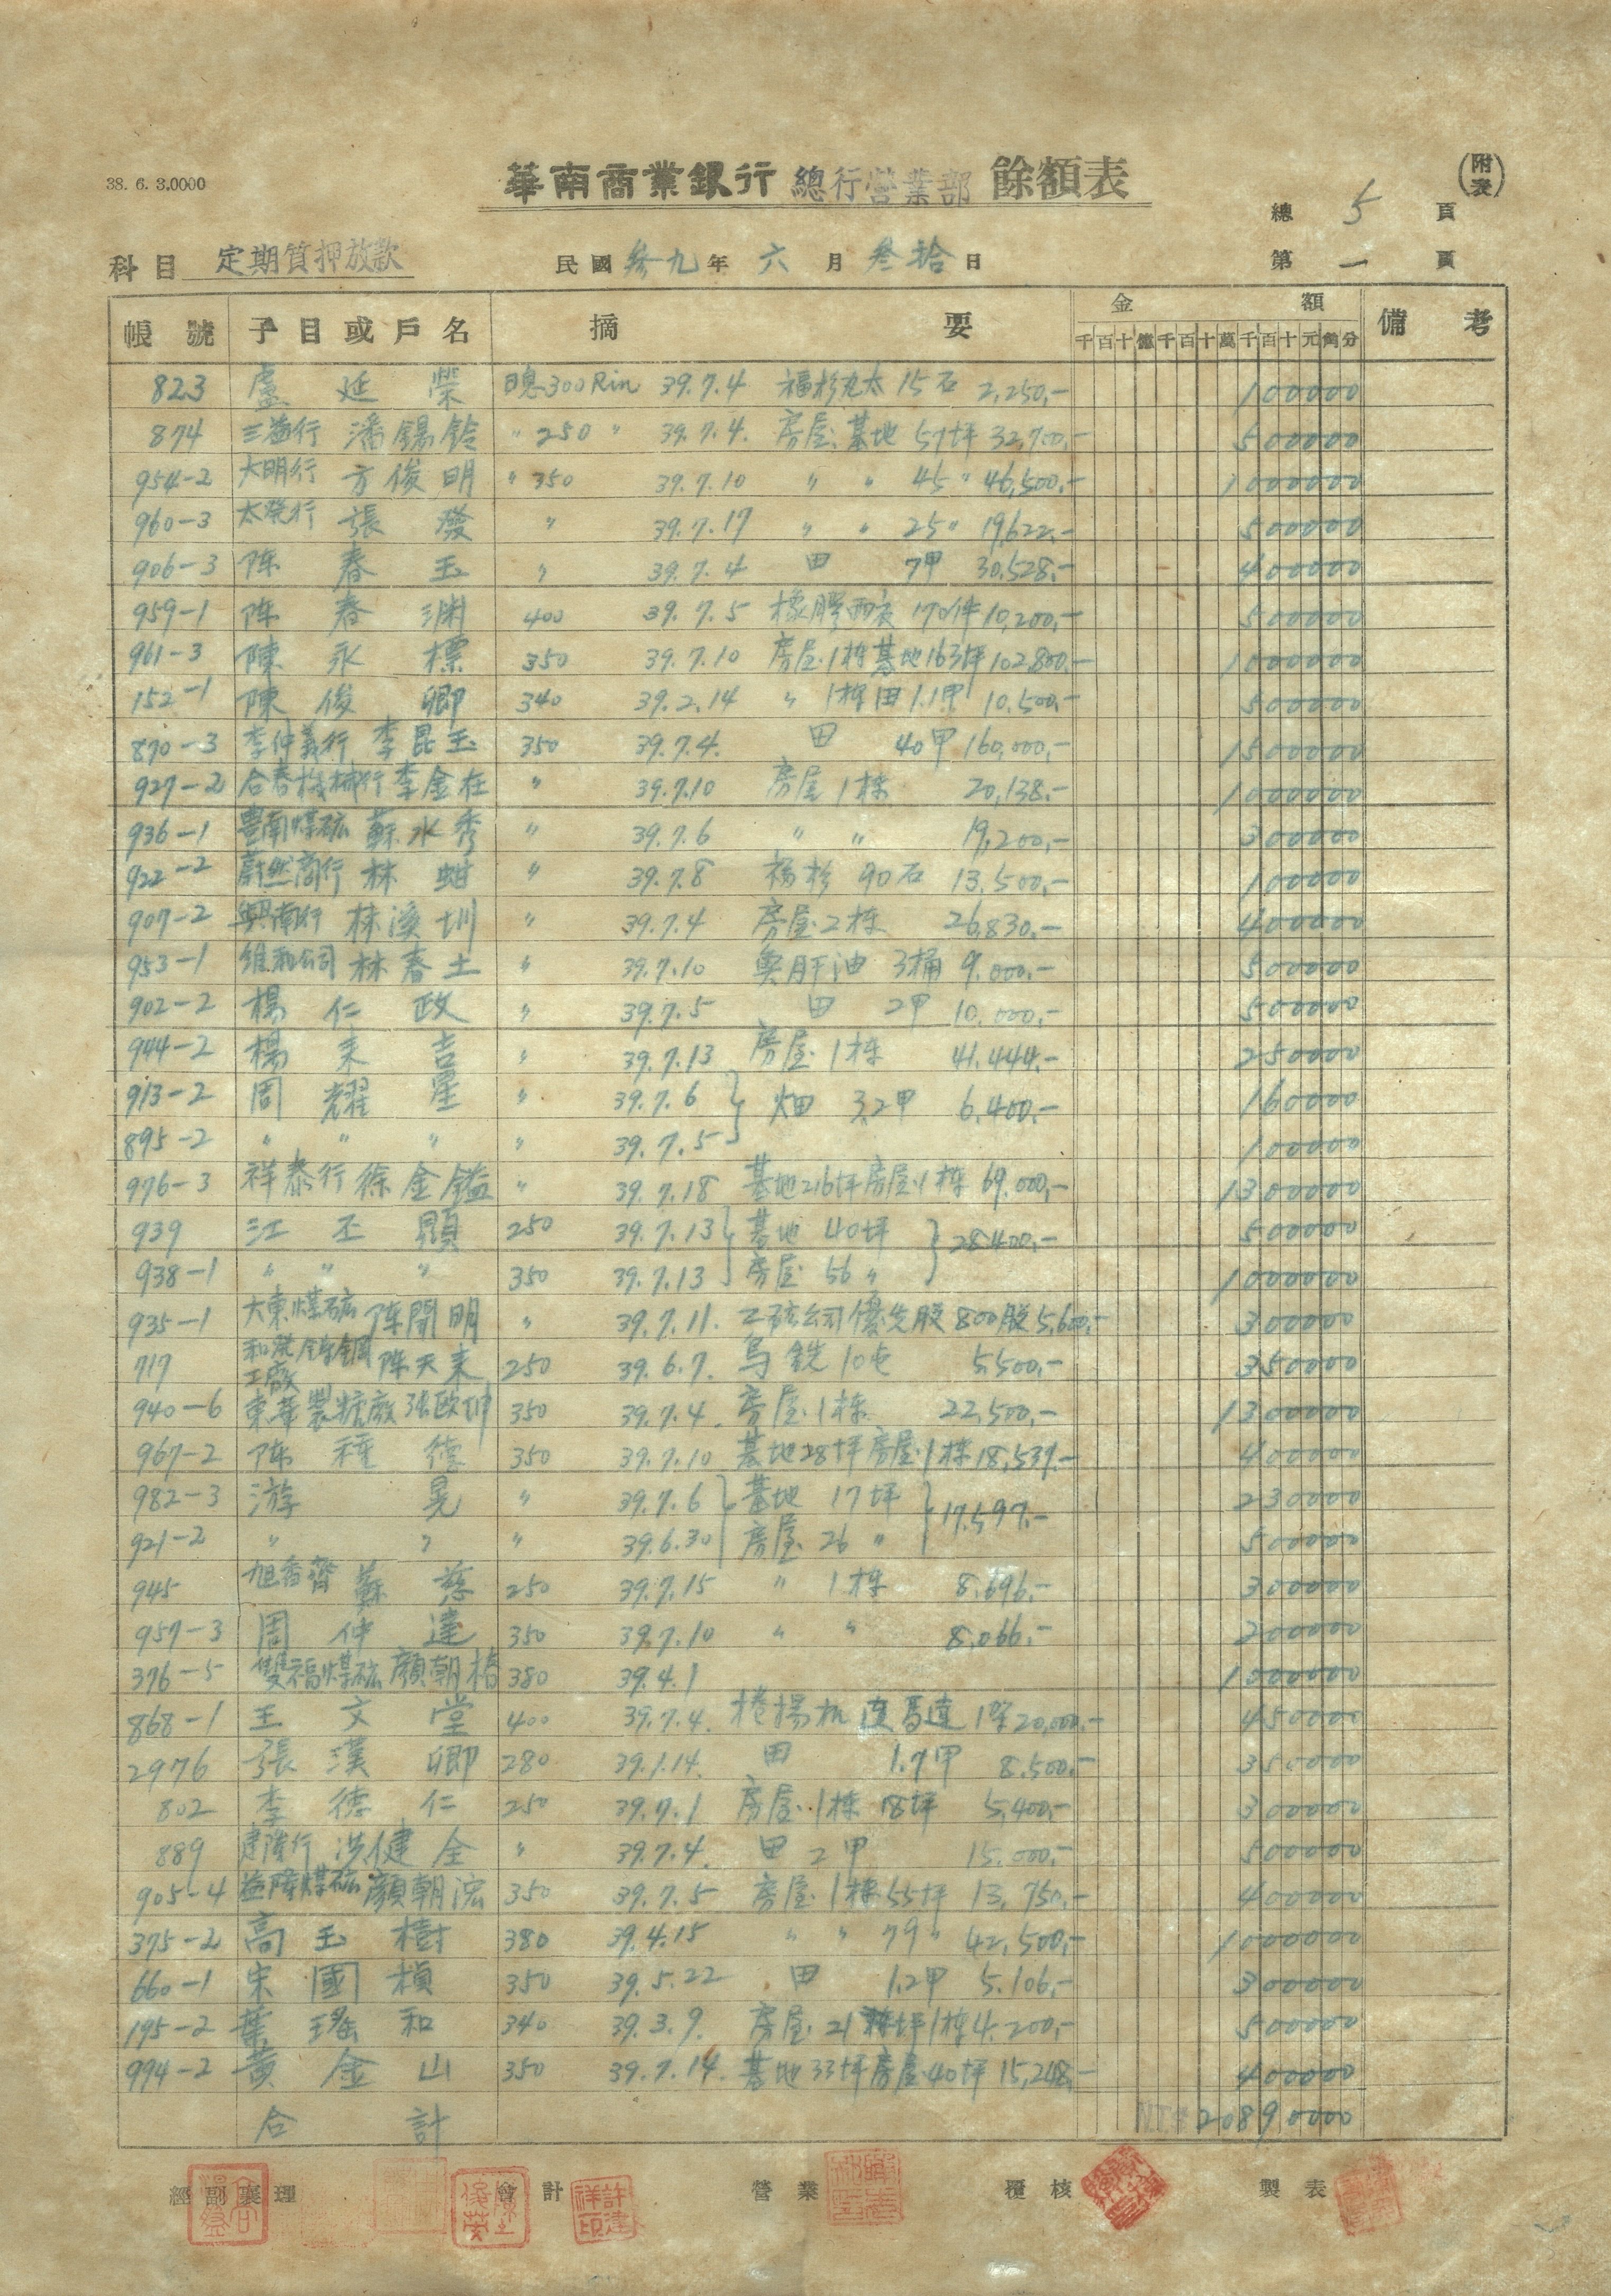 38. 6. 3.0000
華南商業銀行 總行營業部 餘額表
(附表)
總 5 頁
科目 定期質押放款 民國 叁九 年 六 月 叁拾 日 第 一 頁
帳號 子目或戶名 摘要 金額 備考
千百十億千百十萬千百十元角分
823 盧延榮 日息300Rin 39.7.4 福杉丸太 15石 2,250.- 100000
874 三益行 潘錫鈴 〃250〃 39.7.4. 房屋.基地 57坪 32,700.- 500000
954-2 大明行 方俊明 〃350 39.7.10 〃 〃 45〃 46,500.- 1000000
960-3 太榮行 張發 〃 39.7.17 〃 〃 25〃 19,622.- 500000
906-3 陈春玉 〃 39.7.4 田 7甲 30,528.- 400000
959-1 陈春渊 400 39.7.5 橡膠雨衣 170件 10,200.- 500000
961-3 陳永標 350 39.7.10 房屋.1栋基地163坪 102,800.- 1000000
152-1 陳俊卿 340 39.2.14 〃 1栋田1.1甲 10,500.- 500000
870-3 李仲義行 李昆玉 350 39.7.4. 田 40甲 160,000.- 1500000
927-2 合春機械行 李金在 〃 39.7.10 房屋 1栋 20,138.- 1000000
936-1 豊南煤矿 蘇水秀 〃 39.7.6 〃 〃 19,200.- 300000
922-2 蔚然商行 林蚶 〃 39.7.8 福杉 90石 13,500.- 100000
907-2 興南行 林溪圳 〃 39.7.4 房屋.2栋 26,830.- 400000
953-1 維和公司 林春土 〃 39.7.10 魚肝油 3桶 9,000.- 500000
902-2 楊仁政 〃 39.7.5 田 2甲 10,000.- 500000
944-2 楊来喜 〃 39.7.13 房屋.1栋 41,444.- 250000
913-2 周耀星 〃 39.7.6 畑 3.2甲 6,400.- 160000
895-2 〃 〃 〃 〃 39.7.5 100000
976-3 祥泰行 徐金鎰 〃 39.7.18 基地216坪房屋.1栋 69,000.- 1300000
939 江丕顯 250 39.7.13 基地 40坪 28,400.- 500000
938-1 〃 〃 〃 350 39.7.13 房屋 56〃 1000000
935-1 大東煤矿 陈開明 〃 39.7.11. 工矿公司優先股 800股 5,600.- 300000
717 和榮鋳鋼工廠 陈天来 250 39.6.7. 烏鉄 10屯 5,500.- 350000
940-6 東華製糖廠 张欧坤 350 39.7.4. 房屋.1栋 22,500.- 1300000
967-2 陈種德 350 39.7.10 基地28坪房屋.1栋 18,539.- 400000
982-3 游晃 〃 39.7.6 基地 17坪 17,597.- 230000
921-2 〃 〃 〃 39.6.30 房屋 26〃 500000
945 旭香齋 蘇慈 250 39.7.15 〃 1栋 8,696.- 300000
957-3 周仲達 350 39.7.10 〃 〃 8,066.- 200000
376-5 雙福煤矿 顏朝楷 380 39.4.1 1000000
868-1 王文堂 400 39.7.4. 捲揚机連馬達 1架 20,000.- 450000
2976 張漢卿 280 39.1.14. 田 1.7甲 8,500.- 350000
802 李德仁 250 39.7.1 房屋.1栋 18坪 5,400.- 300000
889 建隆行 洪健全 〃 39.7.4. 田 2甲 15,000.- 500000
905-4 益隆煤矿 顏朝浤 350 39.7.5 房屋.1栋55坪 13,750.- 400000
375-2 高玉樹 380 39.4.15 〃 〃 79〃 42,500.- 1000000
660-1 宋國楨 350 39.5.22 田 1.2甲 5,106.- 300000
195-2 葉瑤和 340 39.3.9. 房屋.21坪1栋 4,200.- 500000
994-2 黃金山 350 39.7.14. 基地33坪房屋.40坪 15,248.- 400000
合計 NT$ 20890000
經副襄理 會計 營業 覆核 製表